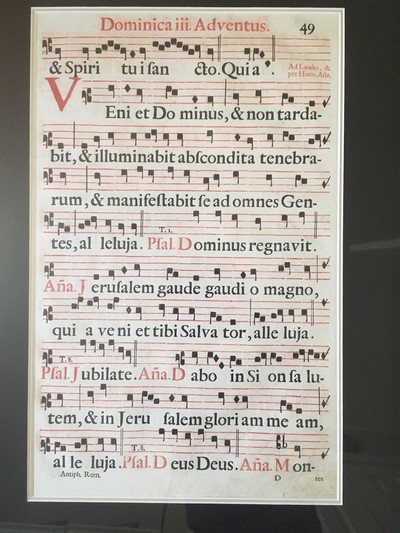 Dominica iii. Adventus. 49
& Spiri tui san cto. Quia
Ad Laudes, &
per Horas, Aña.
VEni et Do minus, & non tarda-
bit, & illuminabit abscondita tenebra-
rum, & manifestabit se ad omnes Gen-
T. 1.
tes, al leluja. Psal. Dominus regnavit.
Aña. Jerusalem gaude gaudi o magno,
qui a ve ni et tibi Salva tor, alle luja.
T. 8.
Psal. Jubilate. Aña. Dabo in Si on sa lu-
tem, & in Jeru salem glori am me am,
T. 8.
al le luja. Psal. Deus Deus. Aña. Mon-
Antiph. Rom. D tes